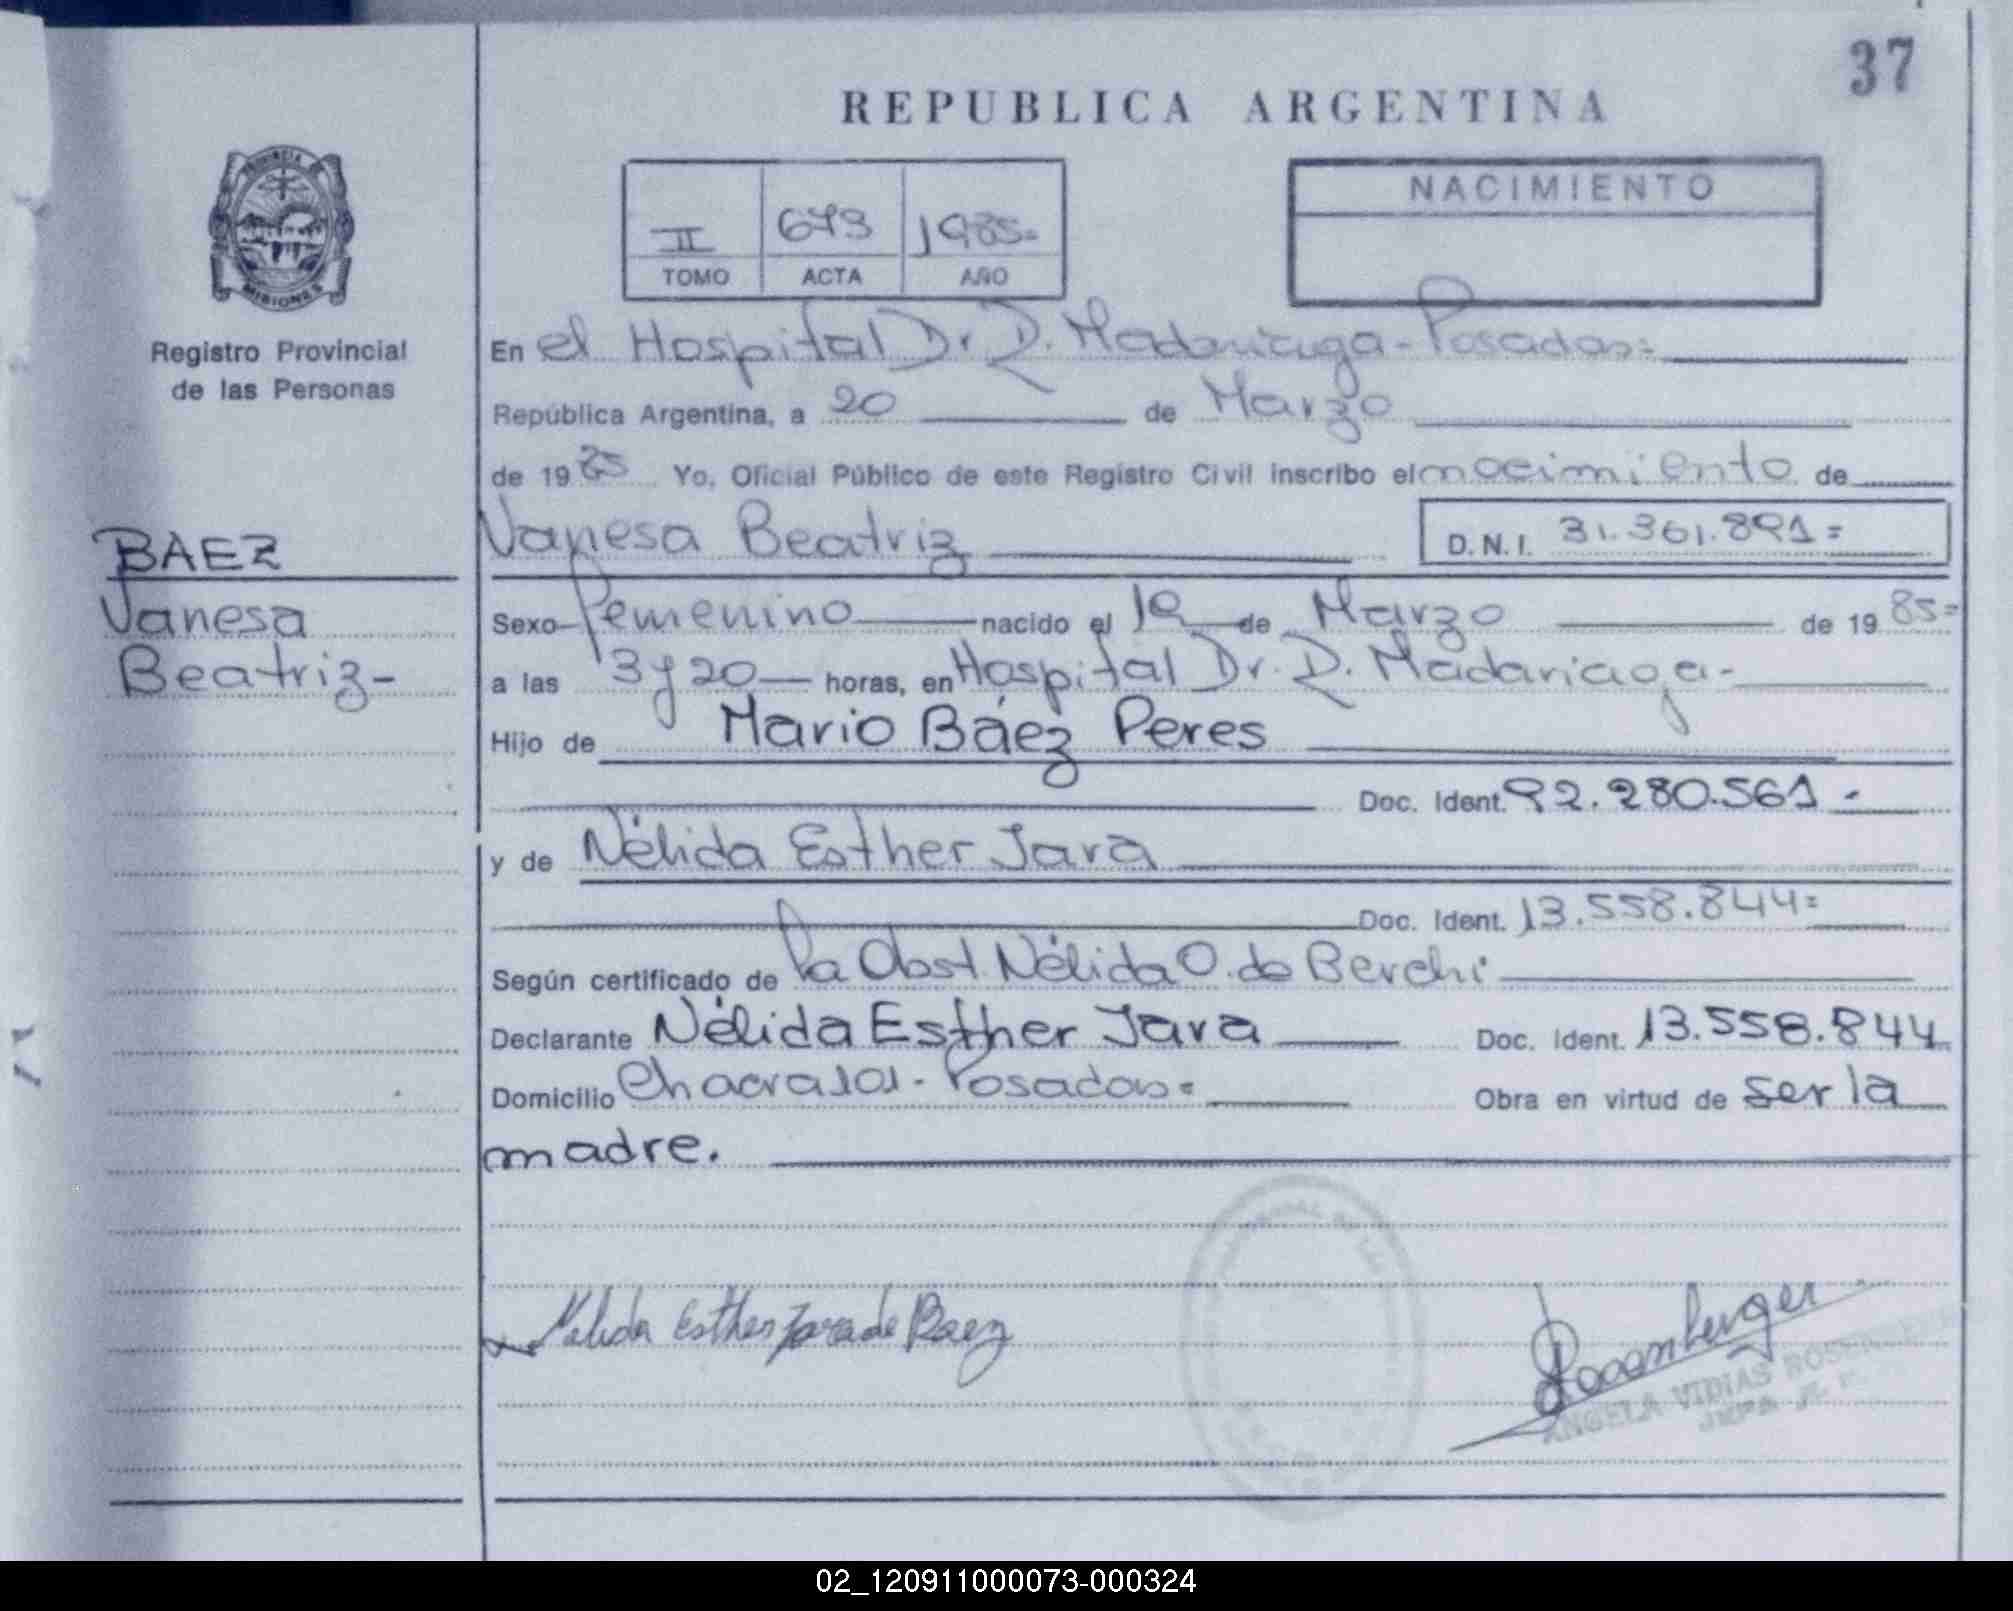 37
REPUBLICA ARGENTINA
PROVINCIA
MISIONES
Registro Provincial
de las Personas
II 673 1985=
TOMO ACTA AÑO
NACIMIENTO
En el Hospital Dr. R. Madariaga - Posadas=
República Argentina, a 20 de Marzo
de 1985 Yo, Oficial Público de este Registro Civil inscribo el nacimiento de
Vanesa Beatriz D.N.I. 31.361.891=
BAEZ
Vanesa
Beatriz-
Sexo Femenino nacido el de Marzo de 1985=
a las 3 y 20 horas, en Hospital Dr. R. Madariaga-
Hijo de Mario Báez Peres
Doc. Ident. 92.280.561-
y de Nélida Esther Jara
Doc. Ident. 13.558.844=
Según certificado de la Obst. Nélida O. de Berchi
Declarante Nélida Esther Jara Doc. Ident. 13.558.844
Domicilio Chacra 101 - Posadas= Obra en virtud de ser la
madre.
Nelida Esther Jara de Baez
Rosemberger
ANGELA VIDIAS
JEFA
02_120911000073-000324